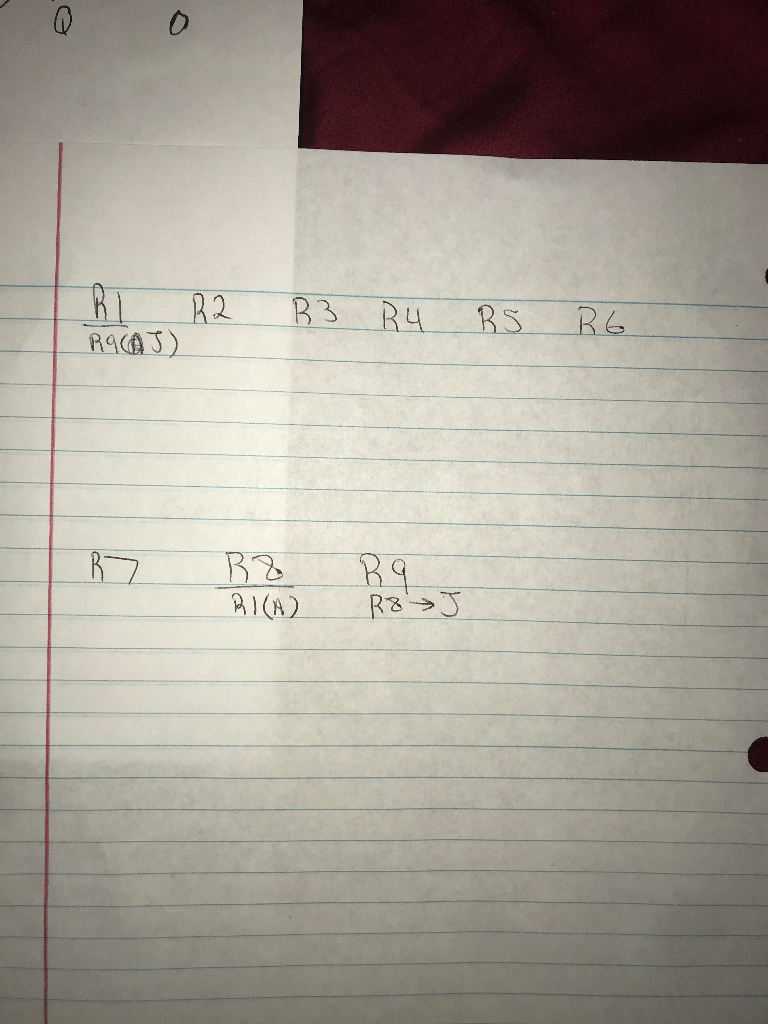 Q O
R1 R2 R3 R4 R5 R6
R9(A J)
R7 R8 R9
R1(A) R8→J